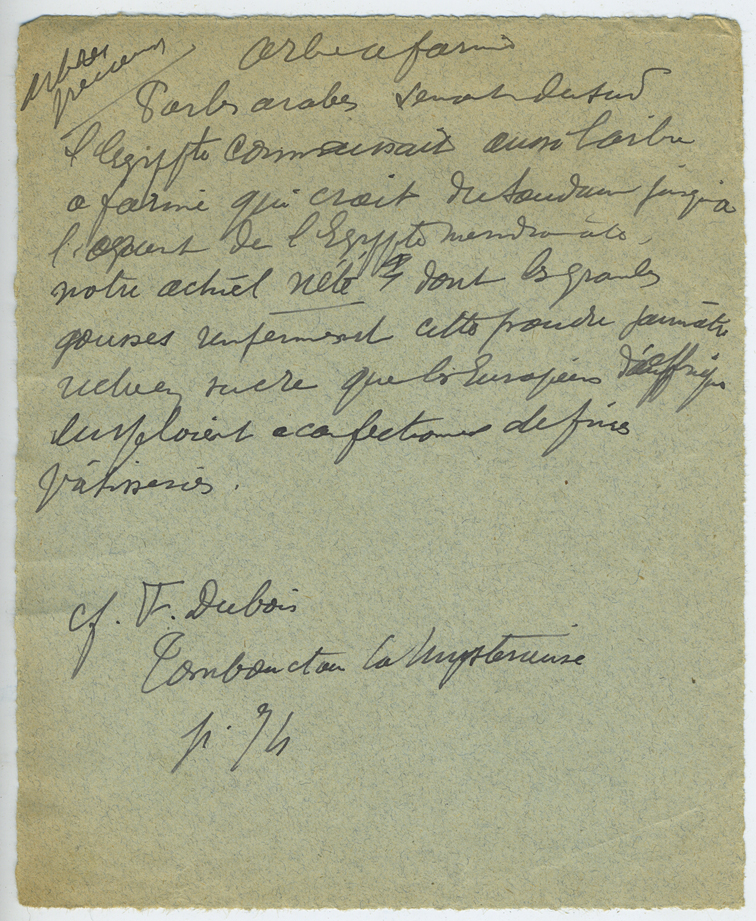 Arbres
précieux
Arbre a farine
Par les arabes venant du sud
l'Egypte connaissait aussi l'arbre
a farine qui croit du Soudan jusqu'a
l'ouest de l'Egypte
notre actuel nété dont les grandes
gousses renferment cette poudre jaunâtre
riche en sucre que les Européens d'Afrique
emploient a confectionner de fines
pâtisseries.
cf. F. Dubois
Tombouctou la Mysterieuse
p.